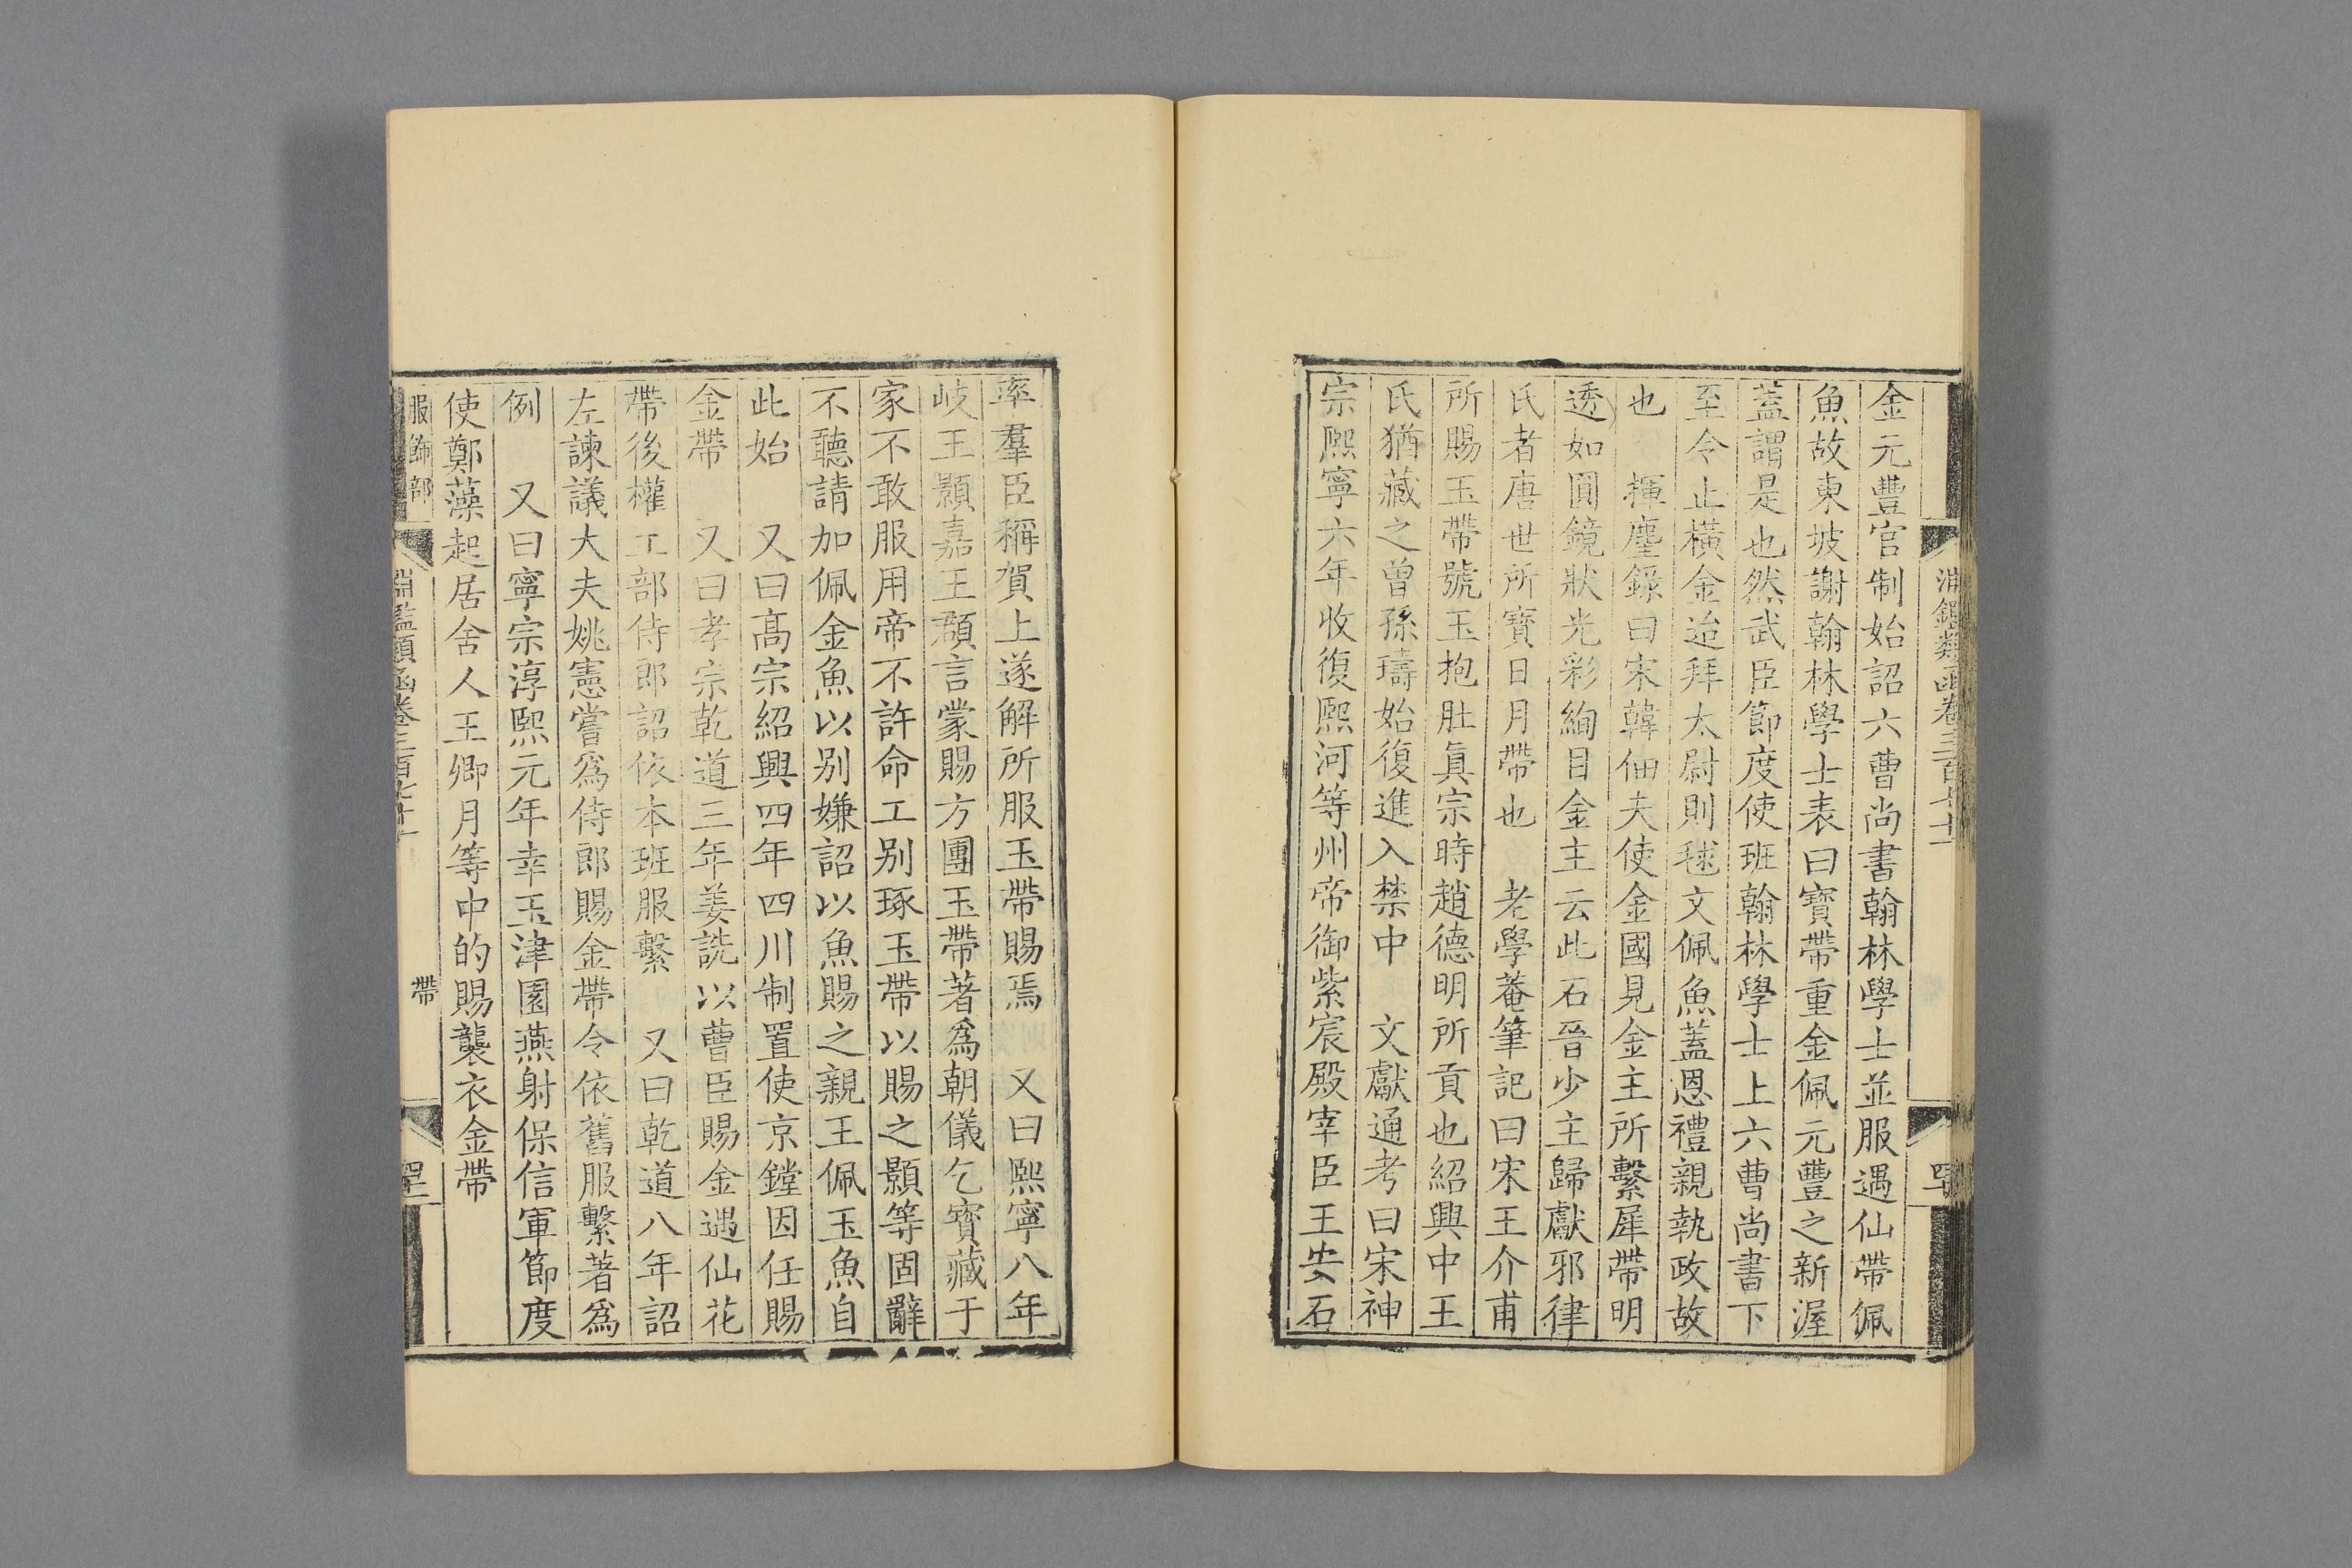 金元豐官制始詔六曹尚書翰林學士並服遇仙帶佩
魚故東坡謝翰林學士表曰寶帶重金佩元豐之新渥
蓋謂是也然武臣節度使班翰林學士上六曹尚書下
至今止橫金迨拜太尉則毬文佩魚蓋恩禮親執政故
也 揮麈錄曰宋韓佃夫使金國見金主所繫犀帶明
透如圓鏡狀光彩絢目金主云此石晉少主歸獻邪律
氏者唐世所寶日月帶也 老學菴筆記曰宋王介甫
所賜玉帶號玉抱肚真宗時趙德明所貢也紹興中王
氏猶藏之曾孫璹始復進入禁中 文獻通考曰宋神
宗熙寧六年收復熙河等州帝御紫宸殿宰臣王安石
率羣臣稱賀上遂解所服玉帶賜焉 又曰熙寧八年
岐王顥嘉王頵言蒙賜方團玉帶著為朝儀乞寶藏于
家不敢服用帝不許命工别琢玉帶以賜之顥等固辭
不聽請加佩金魚以别嫌詔以魚賜之親王佩玉魚自
此始 又曰髙宗紹興四年四川制置使京鏜因任賜
金帶 又曰孝宗乾道三年姜詵以曹臣賜金遇仙花
帶後權工部侍郎詔依本班服繫 又曰乾道八年詔
左諫議大夫姚憲嘗爲侍郎賜金帶令依舊服繫著爲
例 又曰寧宗淳熙元年幸玉津園燕射保信軍節度
使鄭藻起居舍人王卿月等中的賜襲衣金帶
服飾部 淵鑑類函卷三百七十一 帶